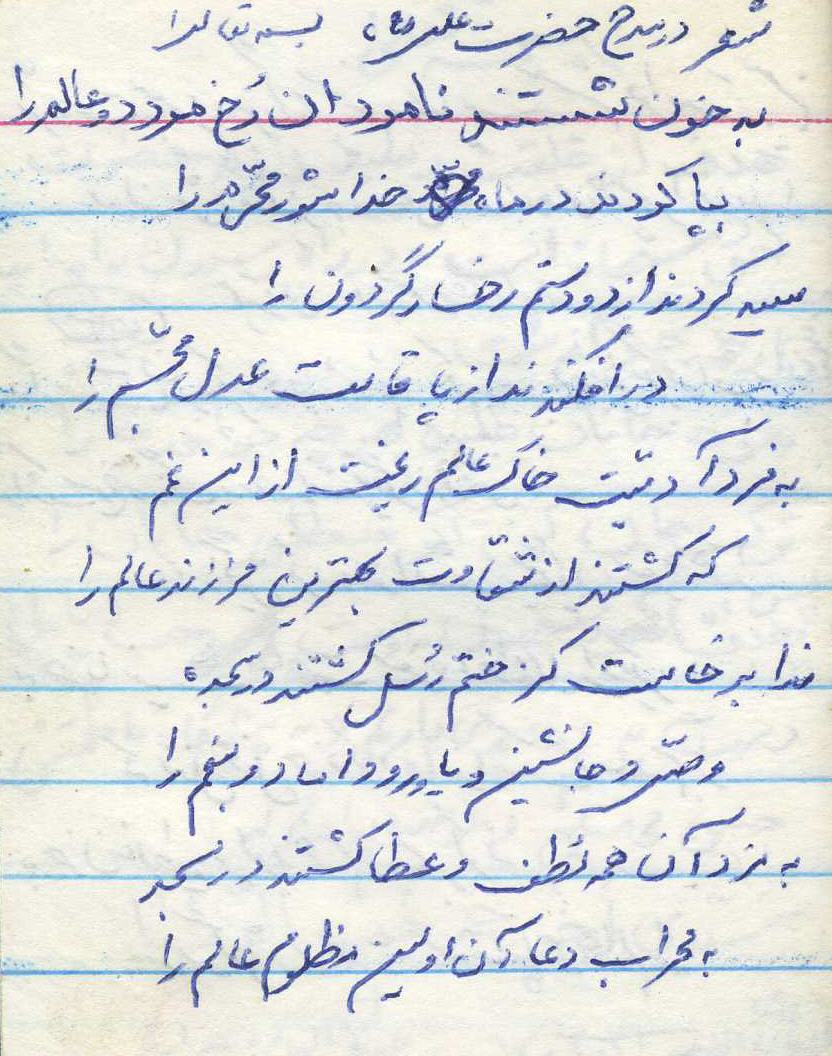 شعر در مدح حضرت علی (ع) بسمه تعالی
به خون شستند نامردان رُخ مرد دو عالم را
بپا کردند در ماه خدا شور محرّم را
سیه کردند از دود ستم رخسار گردون را
در افکندند از پا قامت عدل مجسّم را
به فرد آدمیّت خاک عالم ریخت از این غم
که کشتند از شقاوت بهترین فرزند عالم را
ندا برخاست کز ختم رُسل کشتند در سجده
وصّی و جانشین و یاور و داماد و بنعم را
به مزد آن همه لُطف و عطا کشتند در مسجد
به محراب دعا آن اولین مظلوم عالم را